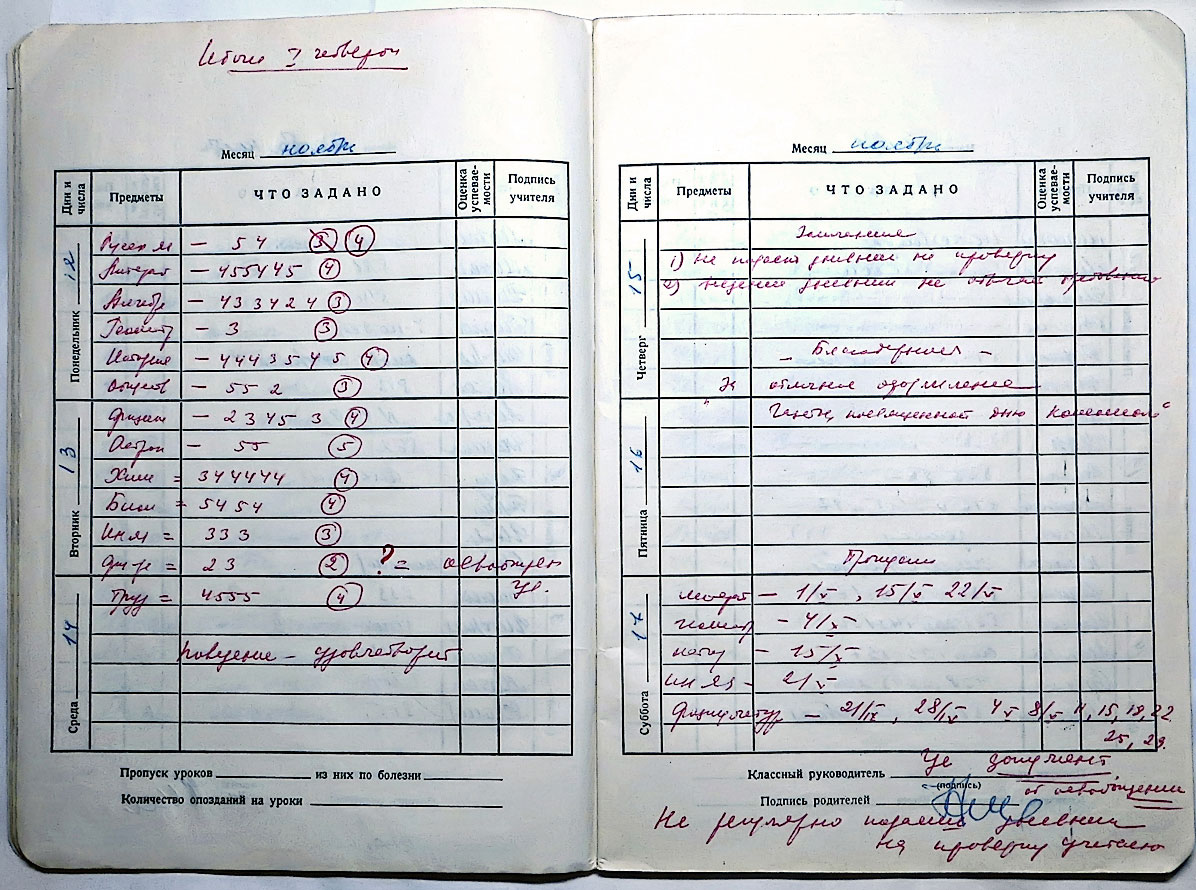 Итоги I четверти
Месяц ноябрь
Дни и числа Предметы ЧТО ЗАДАНО Оценка успевае-мости Подпись учителя
Понедельник 12
Русск яз — 5 4 3 4
Литерат — 455445 4
Алгебр — 433424 3
Геометр — 3 3
История — 4443545 4
Обществ — 552 3
Вторник 13
Физика — 23453 4
Астрон — 55 5
Хим = 344444 4
Биол = 5454 4
Ин яз = 333 3
Физ-ра = 23 2 ? = освобожден
Среда 14
Труд = 4555 4 Где.
поведение — удовлетворит
Пропуск уроков из них по болезни
Количество опозданий на уроки
Месяц ноябрь
Дни и числа Предметы ЧТО ЗАДАНО Оценка успевае-мости Подпись учителя
Четверг 15
Замечания
1) Не подает дневник на проверку
2) ведение дневника не отвечает требованиям
— Благодарность —
За отличное оформление
Пятница 16
газеты, посвященной дню комсомола"
Пропуски
Суббота 17
литерат — 1/X, 15/X 22/X
геометр — 4/X
истор — 15/X
ин яз — 2/X
Физкультур — 21/IX, 28/IX 4/X 8/X 11, 15, 18, 22
25, 29.
Классный руководитель Где документ
(подпись) об освобождении
Подпись родителей
Не регулярно подаешь дневник
на проверку учителю